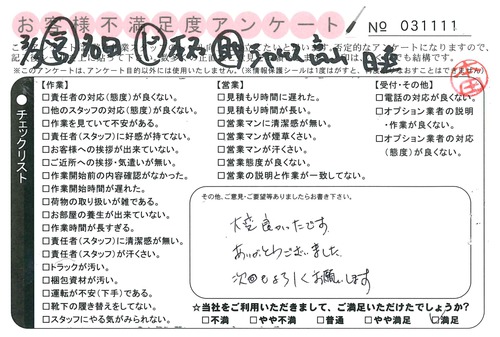 お客様不満足度アンケート
№ 031111
※このアンケートは、アンケート目的以外には使用いたしません。(※情報保護シールは1度はがすと、再度はなおすことはできません)
チェックリスト
【作業】
□責任者の対応(態度)が良くない。
□他のスタッフの対応(態度)が良くない。
□作業を見ていて不安がある。
□責任者(スタッフ)に好感が持てない。
□お客様への挨拶が出来ていない。
□ご近所への挨拶・気遣いが無い。
□作業開始前の内容確認がなかった。
□作業開始時間が遅れた。
□荷物の取り扱いが雑である。
□お部屋の養生が出来ていない。
□作業時間が長すぎる。
□責任者(スタッフ)に清潔感が無い。
□責任者(スタッフ)が汗くさい。
□トラックが汚い。
□梱包資材が汚い。
□運転が不安(下手)である。
□靴下の履き替えをしてない。
□スタッフにやる気がみられない。
【営業】
□見積もり時間に遅れた。
□見積もり時間が長い。
□営業マンに清潔感が無い。
□営業マンが煙草くさい。
□営業マンが汗くさい。
□営業態度が良くない。
□営業の説明と作業が一致してない。
【受付・その他】
□電話の対応が良くない。
□オプション業者の説明
・作業が良くない。
□オプション業者の対応
(態度)が良くない。
その他、ご意見・ご要望等ありましたらお書き下さい。
大変良かったです
ありがとうございました
次回もよろしくお願いします
☆当社をご利用いただきまして、ご満足いただけたでしょうか?
□不満 □やや不満 □普通 □やや満足 □満足